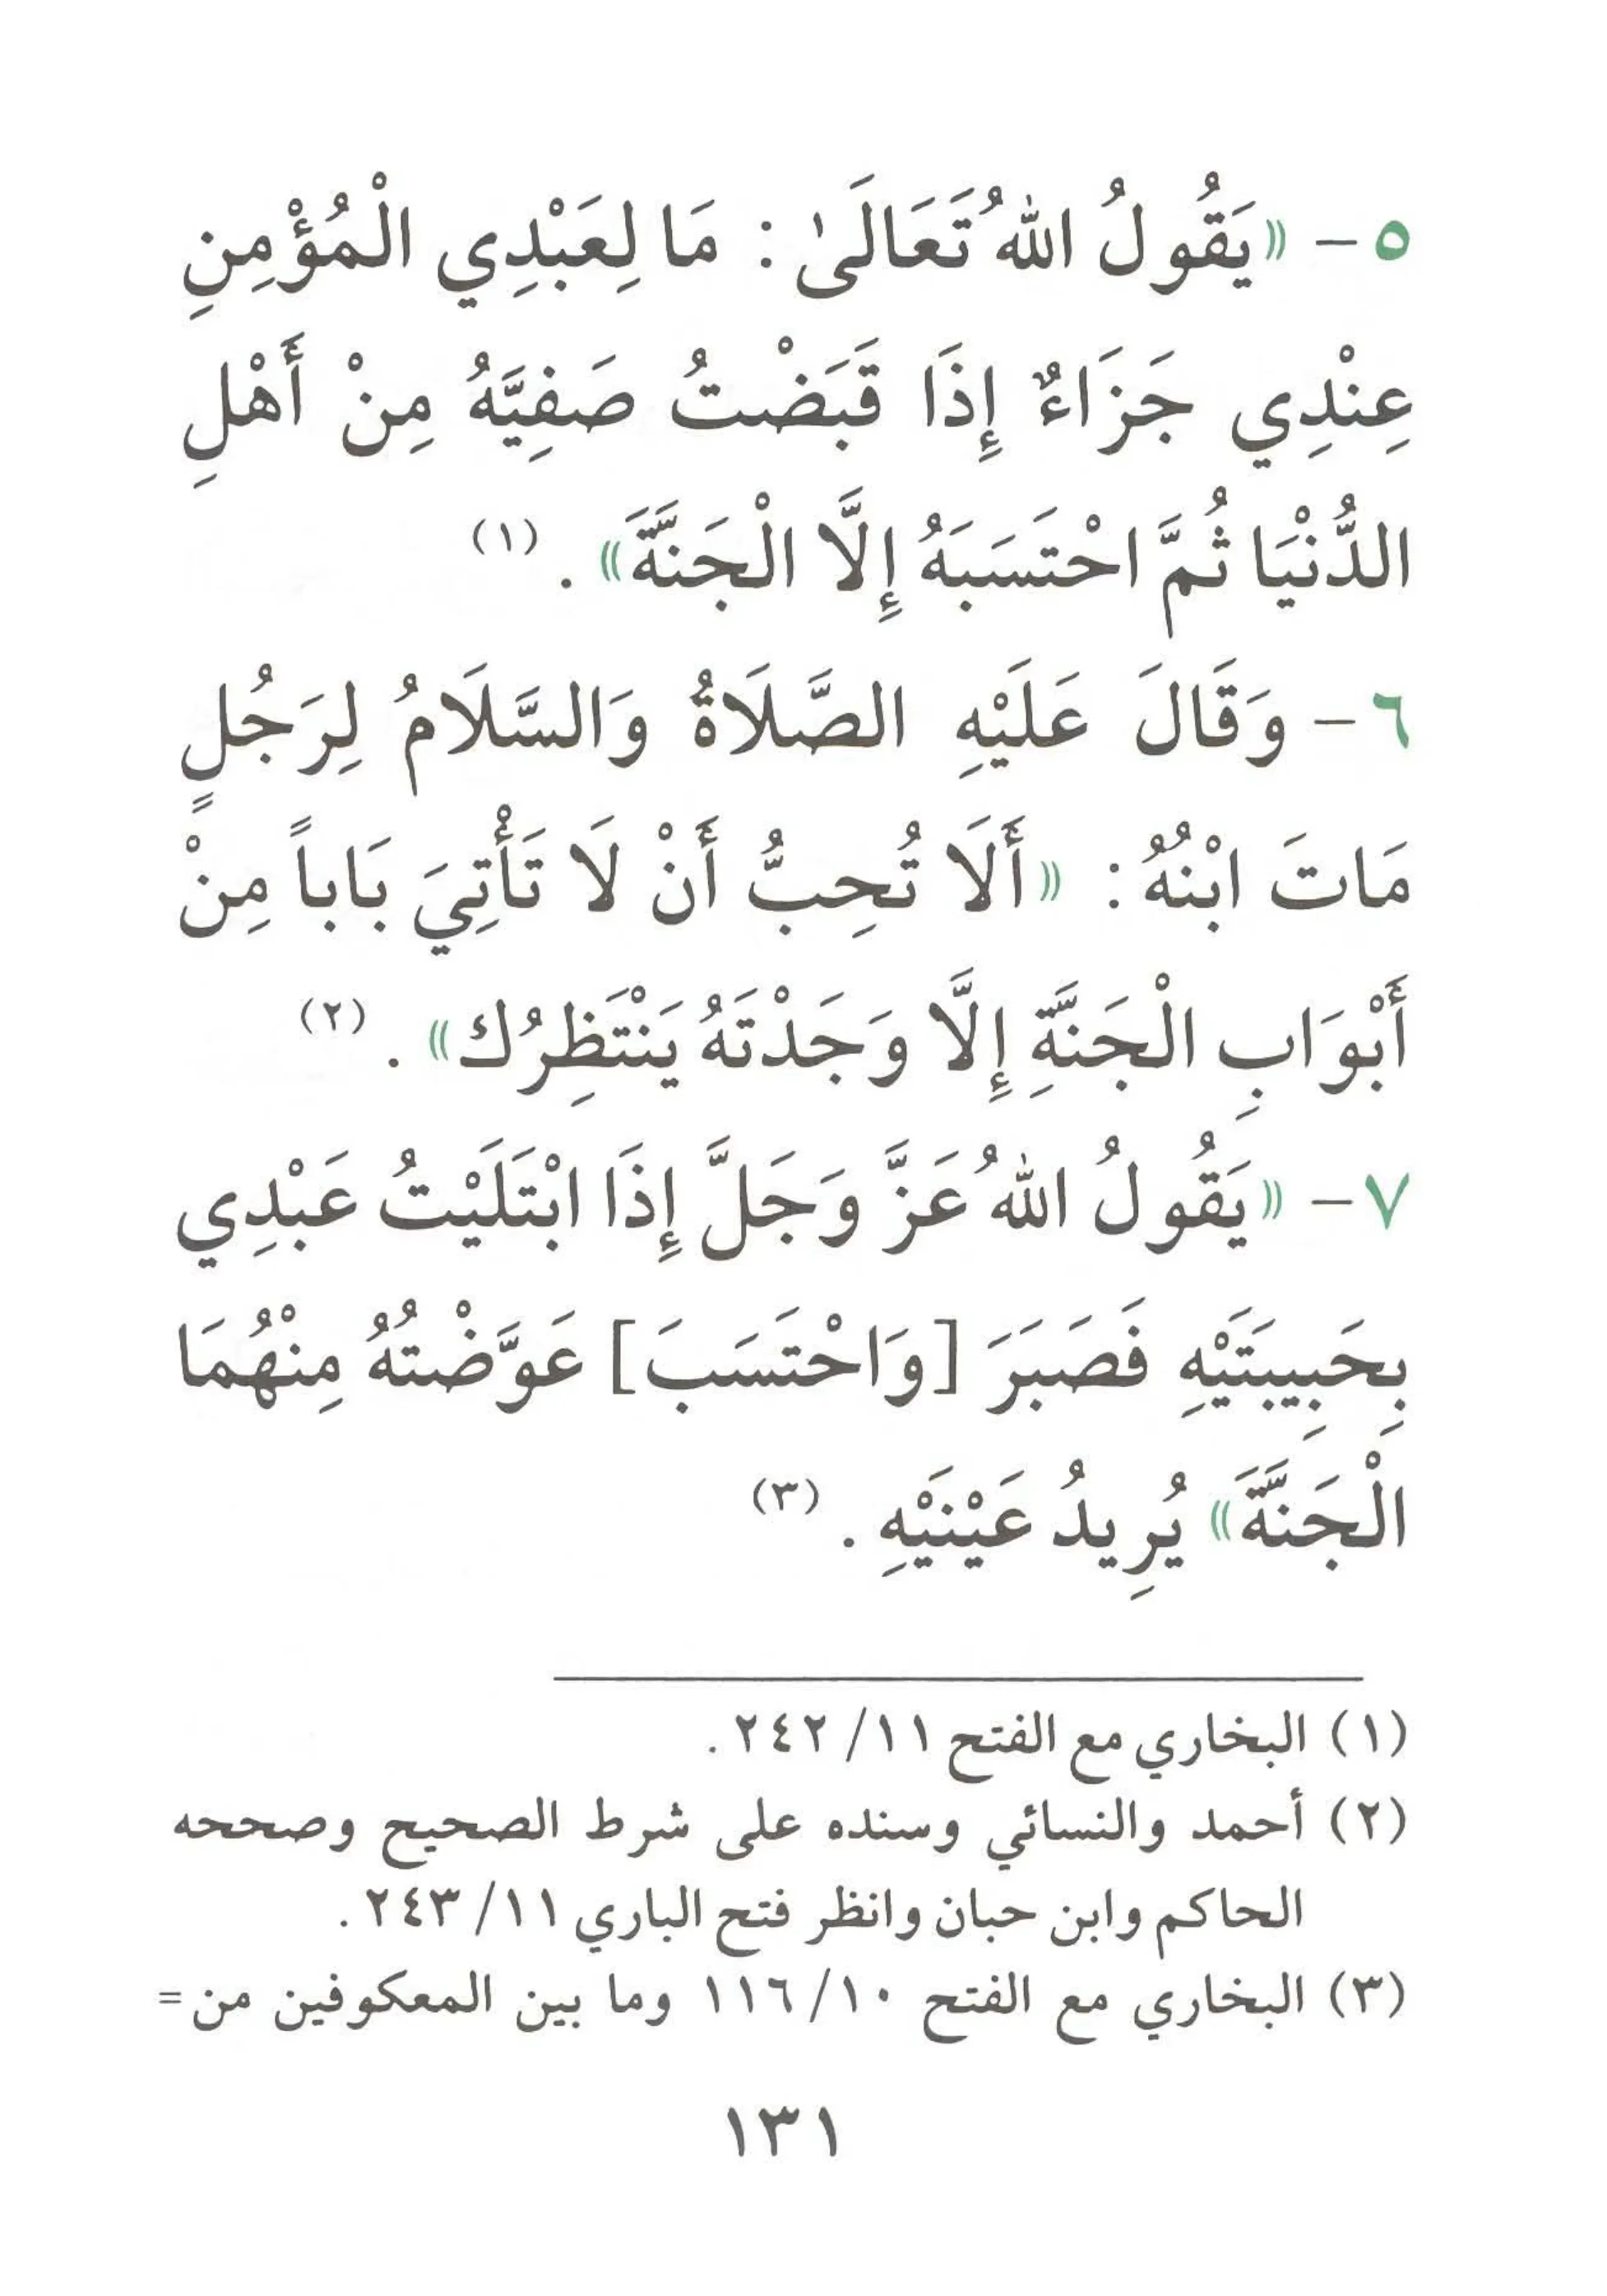 ٥ - «يَقُولُ اللهُ تَعَالَىٰ: مَا لِعَبْدِي الْمُؤْمِنِ
عِنْدِي جَزَاءٌ إِذَا قَبَضْتُ صَفِيَّهُ مِنْ أَهْلِ
الدُّنْيَا ثُمَّ احْتَسَبَهُ إِلَّا الْجَنَّةَ». (١)
٦ - وَقَالَ عَلَيْهِ الصَّلَاةُ وَالسَّلَامُ لِرَجُلٍ
مَاتَ ابْنُهُ: «أَلَا تُحِبُّ أَنْ لَا تَأْتِيَ بَاباً مِنْ
أَبْوَابِ الْجَنَّةِ إِلَّا وَجَدْتَهُ يَنْتَظِرُكَ». (٢)
٧ - «يَقُولُ اللهُ عَزَّ وَجَلَّ إِذَا ابْتَلَيْتُ عَبْدِي
بِحَبِيبَتَيْهِ فَصَبَرَ [وَاحْتَسَبَ] عَوَّضْتُهُ مِنْهُمَا
الْجَنَّةَ» يُرِيدُ عَيْنَيْهِ. (٣)
(١) البخاري مع الفتح ١١/ ٢٤٢.
(٢) أحمد والنسائي وسنده على شرط الصحيح وصححه
الحاكم وابن حبان وانظر فتح الباري ١١/ ٢٤٣.
(٣) البخاري مع الفتح ١٠/ ١١٦ وما بين المعكوفين من =
١٣١